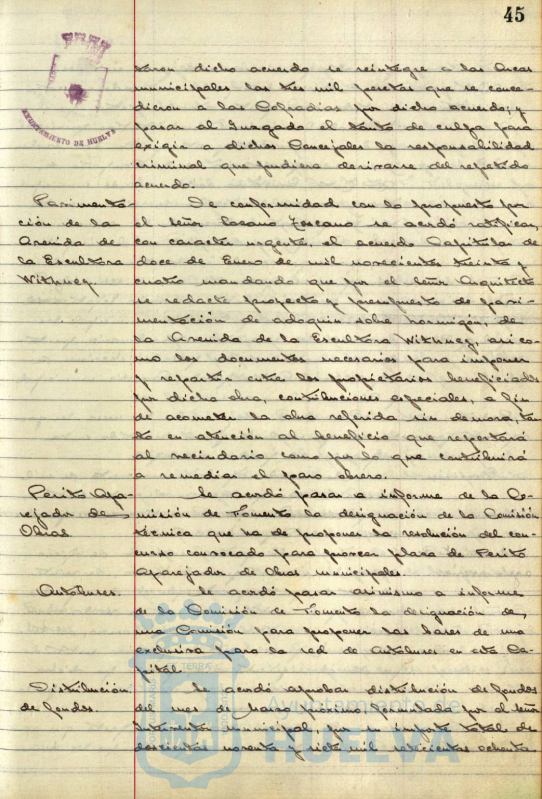 45
AYUNTAMIENTO DE HUELVA
taron dicho acuerdo se reintegre a las Arcas
municipales las tres mil pesetas que se conce-
dieron a las Cofradías por dicho acuerdo; y
pasar al Juzgado el tanto de culpa para
exigir a dichos Concejales la responsabilidad
criminal que pudiera derivarse del repetido
acuerdo.
Pavimenta-
ción de la
Avenida de
la Escultora
Withney.
De conformidad con lo propuesto por
el señor Lozano Toscano se acordó ratificar,
con caracter urgente, el acuerdo Capitular de
doce de Enero de mil novecientos treinta y
cuatro mandando que por el señor Arquitecto
se redacte proyecto y presupuesto de pavi-
mentación de adoquín sobre hormigón, de
la Avenida de la Escultora Withney, asi co-
mo los documentos necesarios para imponer
y repartir entre los propietarios beneficiados
por dicha obra, contribuciones especiales, a fin
de acometer la obra referida sin demora, tan-
to en atención al beneficio que reportará
al vecindario como por lo que contribuirá
a remediar el paro obrero.
Perito Apa-
rejador de
Obras.
Se acordó pasar a informe de la Co-
misión de Fomento la designación de la Comisión
técnica que ha de proponer la resolución del con-
curso convocado para proveer plaza de Perito
Aparejador de Obras municipales.
Autobuses.
Se acordó pasar asimismo a informe
de la Comisión de Fomento la designación de,
una Comisión para proponer las bases de una
exclusiva para la red de Autobuses en esta Ca-
pital.
Distribución
de fondos.
Se acordó aprobar distribución de fondos
del mes de Marzo próximo formulada por el señor
Interventor municipal, por un importe total de
doscientas noventa y siete mil setecientas ochenta
Ayuntamiento de
HUELVA